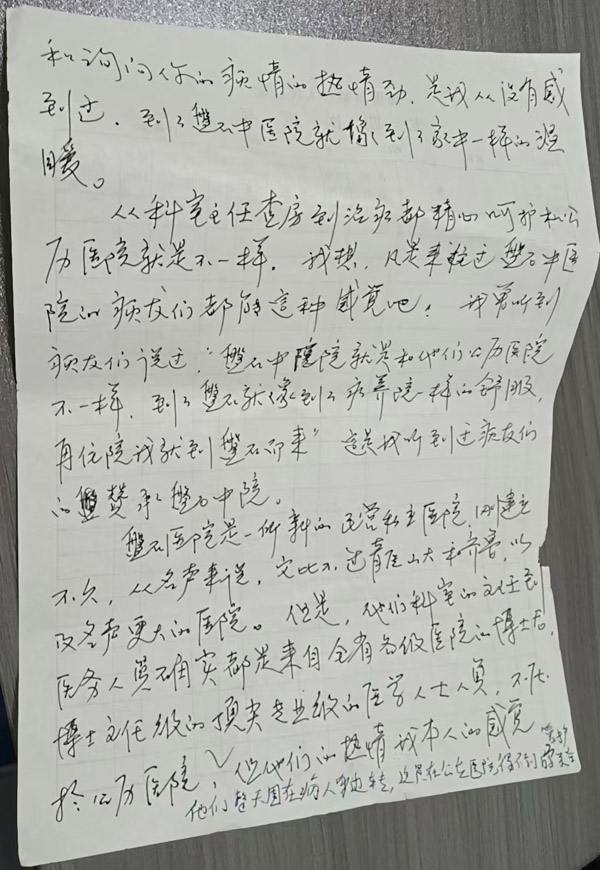 和询问你的病情的热情劲，是我从没有感
到过，到了磐石中医院就像到了家中一样的温
暖。
从科室主任查房到治病都精心呵护和公
历医院就是不一样。我想，凡是来住过磐石中医
院的病友们都能这种感觉吧！我曾听到
病友们说过，“磐石中医院就是和他们公历医院
不一样，到了磐石就像到了疗养院一样的舒服，
再住院我就到磐石而来”这是我听到过病友们
的赞承磐石中院。
磐石医院是一所新的民营私立医院，刚建立
不久，从名声来说，它比不过青医山大和齐鲁，以
及名声更大的医院。但是，他们科室的主任到
医务人员确实都是来自全省各级医院的博士后，
博士主任级的顶尖专业级的医学人士人员，不低
于公历医院，但他们的热情我本人的感觉
他们整天围在病人身边转，这是在公立医院得不到